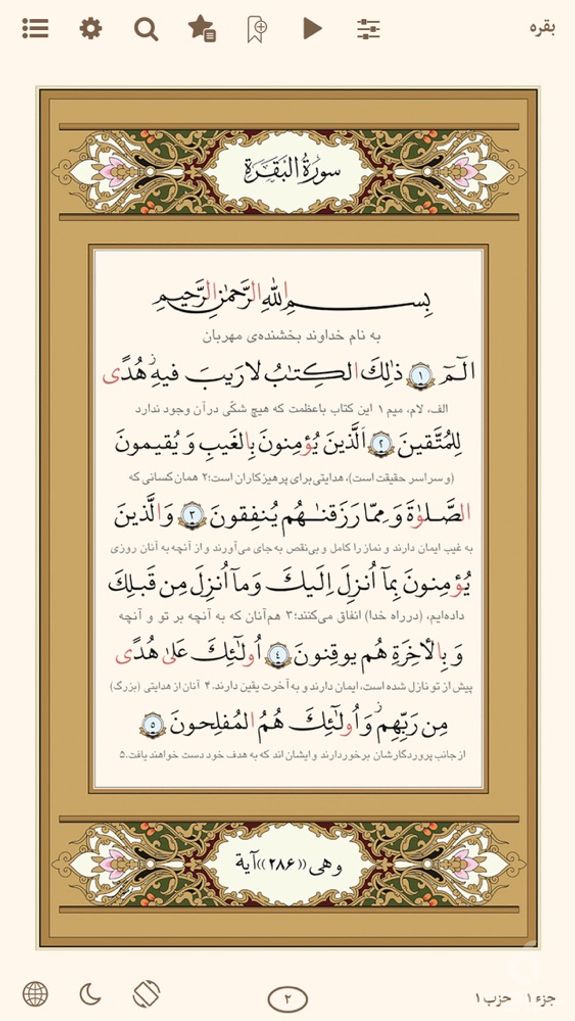 بقره
سورة البقرة
بِسمِ اللهِ الرَّحمٰنِ الرَّحیمِ
به نام خداوند بخشنده‌ی مهربان
الٓمٓ ۱ ذٰلِکَ الکِتٰبُ لا رَیبَ فیهِ هُدًی
الف، لام، میم ۱ این کتاب باعظمت که هیچ شکّی در آن وجود ندارد
لِلمُتَّقینَ ۲ اَلَّذینَ یُؤمِنونَ بِالغَیبِ وَ یُقیمونَ
(و سراسر حقیقت است)، هدایتی برای پرهیزکاران است؛۲ همان کسانی که
الصَّلوٰةَ وَ مِمّا رَزَقنٰهُم یُنفِقونَ ۳ وَالَّذینَ
به غیب ایمان دارند و نماز را کامل و بی‌نقص به جای می‌آورند و از آنچه به آنان روزی
یُؤمِنونَ بِمآ اُنزِلَ اِلَیکَ وَمآ اُنزِلَ مِن قَبلِکَ
داده‌ایم، (در راه خدا) انفاق می‌کنند؛۳ هم‌آنان که به آنچه بر تو و آنچه
وَ بِالأخِرَةِ هُم یوقِنونَ ۴ اُولٰٓئِکَ عَلیٰ هُدًی
پیش از تو نازل شده است، ایمان دارند و به آخرت یقین دارند. ۴ آنان از هدایتی (بزرگ)
مِن رَبِّهِم وَ اُولٰٓئِکَ هُمُ المُفلِحونَ ۵
از جانب پروردگارشان برخوردارند و ایشان اند که به هدف خود دست خواهند یافت.۵
وهی ((۲۸۶)) آیة
جزء ۱ حزب ۱
۲